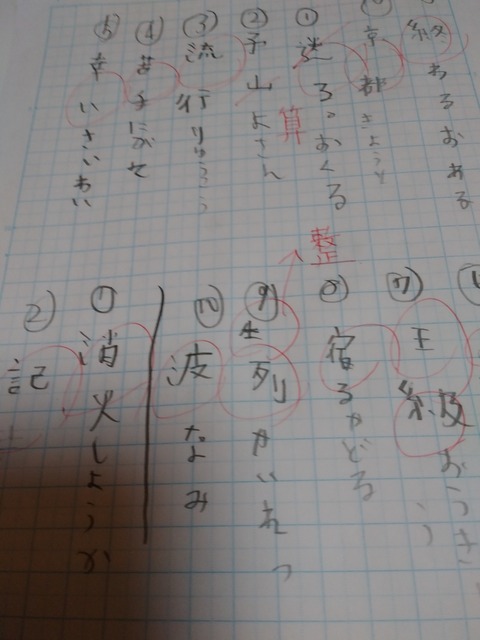 終わるおわる
京都きょうと
① 送るおくる
② 予山よさん
算
③ 流行りゅうこう
④ 苦手にがて
⑤ 幸いさいわい
⑦ 王級おうきゅう
⑧ 宿るやどる
⑨ 列せいれつ
整
⑩ 波なみ
① 消火しょうか
② 記